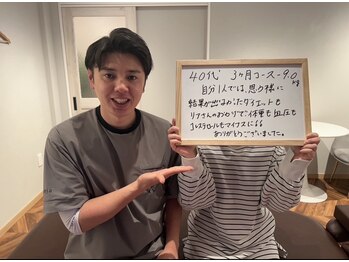 40代 3ヶ月コース -9.0kg
自分1人では、思う様に
結果が出なかったダイエットも
リアさんのおかげで体重も血圧も
コレステロールもマイナスに!!
ありがとうございました。